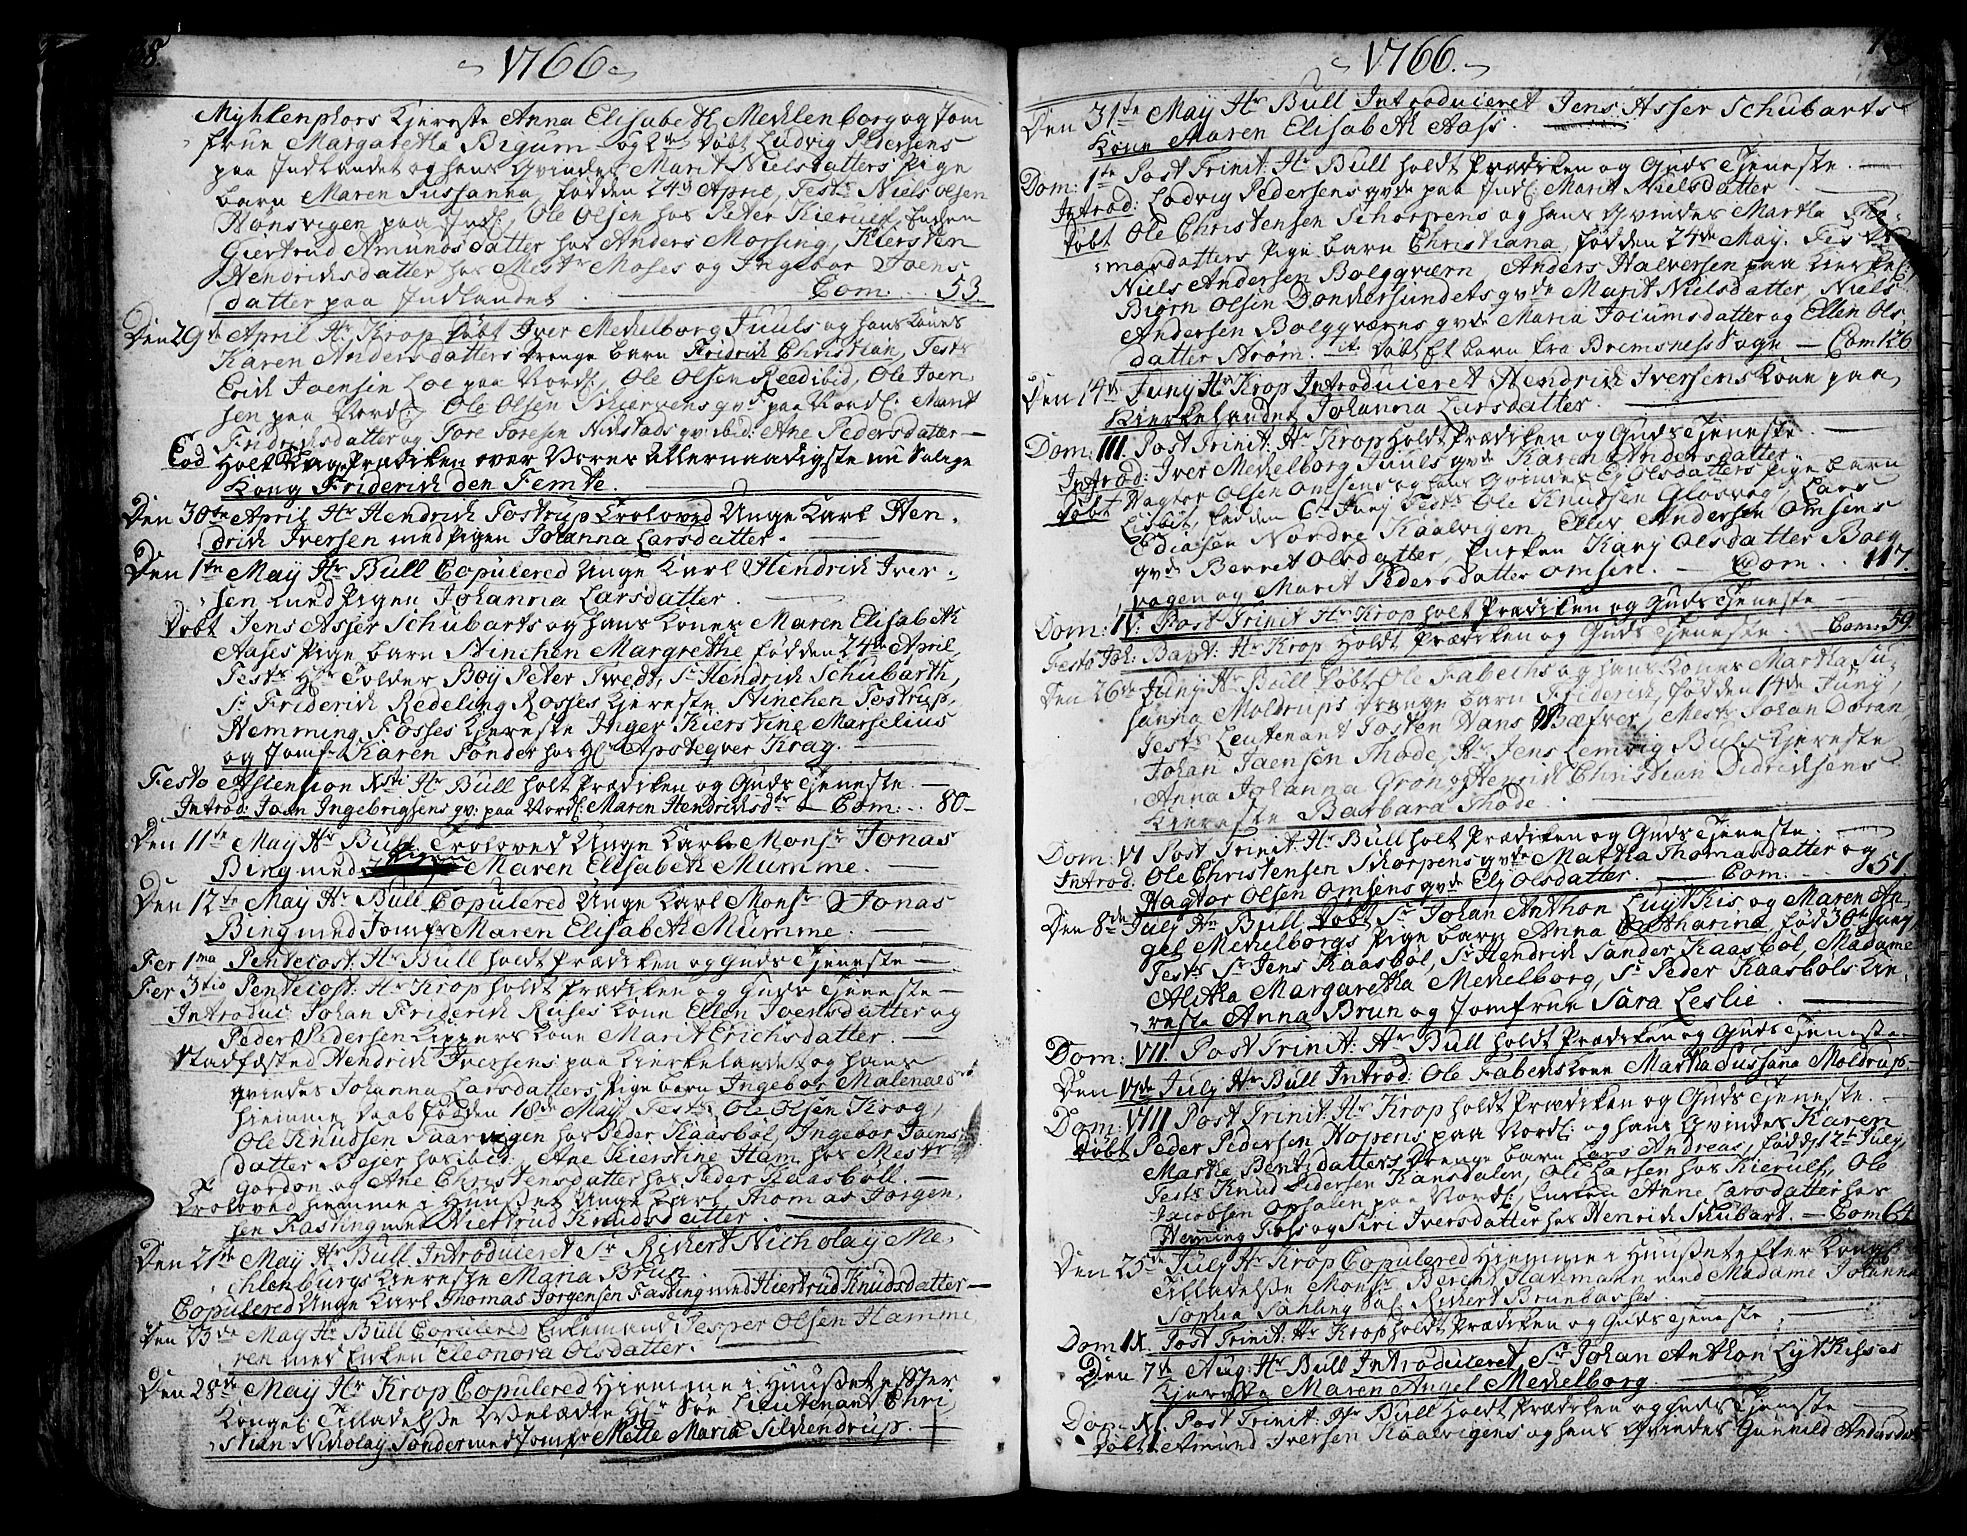 1766
Myhlenphors Kiereste Anna Elisabeth Mechlenborg og Jom
frue Margaretha Bigum og 2de Døbt Ludvig Pedersens
paa Indlandet og hans Qvindes Marit Nielsdatters Pige
barn Maren Sussanna, fød den 24de April, Test: Niels Olsen
Hønsvigen paa Indl: Ole Olsen hos Peter Kierulf, Enken
Giertrud Amundsdatter hos Anders Morsing, Kiersten
Hendrichsdatter hos Mestr Moses og Ingebor Joens
datter paa Indlandet. Com: 53
Den 29de April Hr Krop Døbt Iver Mechelborg Juuls og hans Kones
Karen Andersdatters Drenge barn Fridrich Christian, Test:
Erich Joensen Loe paa Nordl:, Ole Olsen Reed ibid, Ole Joen
sen paa Nordl: Ole Olsen qv: paa Nordl: Marit
Fridrichsdatter og Tore Toresen Nerstads qv: ibid: Ane Pedersdatter
Eod Holt Prædiken over Vores Allernaadigste nu Salige
Kong Friderich den Femte.
Den 30te April Hr Hendrich Tostrup Troloved Unge Karl Hen
drich Iversen med Pigen Johanna Larsdatter.
Den 1te May Hr Bull Copulered Unge Karl Hendrich Iver
sen med Pigen Johanna Larsdatter.
Døbt Jens Asser Schubarts og hans Kones Maren Elisabeth
Aases Pige barn Stinchen Margrethe, fød den 24de April,
Test: Hr Tolder Boy Peter Twedt, Sr Hendrich Schubarth,
Sr Friderich Redeling Rosses Kiereste Stinchen Testrup,
Hemming Fosses Kiereste Inger Kierstine Marselius
og Jomfr Karen Tønder hos Hr Apoteqver Krag.
Festo Astension Xsti Hr Bull holt Prædiken og Guds Tjeneste.
Introd: Joen Ingebrigsens qv: paa Nordl: Maren Hendrichsdr Com: 80
Den 11te May Hr Bull Troloved Unge Karl Monsr Jonas
Bing med Pigen Maren Elisabeth Mumme.
Den 12te May Hr Bull Copulered Unge Karl Monsr Jonas
Bing med Jomfr Maren Elisabeth Mumme.
Fer 1ma Pentecost: Hr Bull holdt Prædiken og Guds Tjeneste
Fer 3tio Pentecost: Hr Krop holdt Prædiken og Guds Tjeneste
Introduc: Johan Friderich Ruses Kone Ellen Joensdatter og
Peder Pedersen Kippers Kone Marit Erichsdatter.
Stadfæsted Hendrich Iversens paa Kierkelandet og hans
qvindes Johanna Larsdatters Pige barn Ingebor Malenaes
hiemme Daab fød den 18de May, Test: Ole Olsen Krog,
Ole Knudsen Saarvigen hos Peder Kaasbøl, Ingebor Joens
datter Bejer hos ibid:, Ane Kierstine Ham hos Mestr
Gordon og Ane Christensdatter hos Peder Kaasbøll.
Troloved hiemme i Huuset Unge Karl Thomas Jorgen
sen Fasting med Hiertrud Knudsdatter.
Den 21de May Hr Bull Introduceret Sr Richert Nicholay Me
chlenburgs Kiereste Maria Brun
Copulered Unge Karl Thomas Jorgensen Fasting med Hiertrud Knudsdatter
Den 23de May Hr Bull Copulered Enkemand Jesper Olsen Hamme
ren med Enken Eleonora Olsdatter.
Den 28de May Hr Krop Copulered Hiemme i Huuset efter
Kongel: Tilladelse Velædle Hr Søe Lieutenant Chri
stian Nicholay Tønder med Jomfr Mette Maria Silchendrup.
1766.
Den 31te May Hr Bull Introduceret Jens Asser Schubarts
Kone Maren Elisabeth Aass.
Dom: 1te Post Trinit: Hr Bull holdt Prædiken og Guds Tjeneste.
Introd: Ludvig Pedersens qvde paa Indl: Marit Nielsdatter
Døbt Ole Christensen Schorpens og hans Qvindes Martha Tho
masdatters Pige barn Christiana, fød den 24de May. Test:
Niels Andersen Bolgqværn, Anders Halversen paa Kierkel:
Biørn Olsen Donkersundets qvde Marit Nielsdatter, Niels
Andersen Bolgqværns qvde Maria Jocumsdatter og Ellen Ols
datter Strøm. it Døbt Et barn fra Bremsness Sogn Com 126
Den 14de Juny Hr Krop Introduceret Hendrich Iversens Kone paa
Kierkelandet Johanna Larsdatter.
Dom: III. Post Trinit: Hr Krop holdt Prædiken og Guds Tjeneste.
Introd: Iver Mechelborg Juuls qvde Karen Andersdatter.
Døbt Hagtor Olsen Omsens og hans Qvindes Elj Olsdatters Pige barn
Lisbet, fød den 6te Juny Test: Ole Knudsen Glosvog, Lars
Ediasen Nordre Kaalvigen, Ellev Andersen Omsens
qvde Berret Olsdatter, Enken Karj Olsdatter Bolg
vogen og Marit Pedersdatter Omsen. Com: 117.
Dom: IV: Post Trinit Hr Krop holt Prædiken og Guds Tjeneste
Festo Joh: Bapt: Hr Krop Holdt Prædiken og Guds Tjeneste. Com: 59
Den 26de Juny Hr Bull Døbt Ole Fabechs og hans Kones Martha Su
sanna Moldrups Drenge barn Friderich, fød den 14de Juny,
Test: Leutenant Tosten Hans Bæfver, Mestr Johan Doran,
Johan Joensen Thode, Hr Jens Lemvig Bulls Kiereste
Anna Johanna Gron og Henrich Christian Didrichsens
Kiereste Barbara Thode
Dom: VI Post Trinit: Hr Bull holt Prædiken og Guds Tjeneste.
Introd: Ole Christensen Skorpens qvde Martha Thomasdatter og
Hagtor Olsen Omsens qvde Elj Olsdatter. Com: 151.
Den 8de July Hr Bull Døbt Sr Johan Anthon Luytkis og Maren An
gel Mechelborgs Pige barn Anna Catharina, fød 30te Juny
Test: Sr Jens Kaasbøl, Sr Hendrich Sander Kaasbøl, Madame
Alitha Margaretha Mechelborg, Sr Peder Kaasbøls Kie
reste Anna Brun og Jomfrue Sara Leslie.
Dom: VII. Post Trinit: Hr Bull holdt Prædiken og Guds Tjeneste
Den 17de July Hr Bull Introd: Ole Fabechs Kone Martha Sussana Moldrup.
Dom: VIII Post Trinit: Hr Krop holdt Prædiken og Guds Tjeneste.
Døbt Peder Pedersen Hopens paa Nordl: og hans Qvindes Karen
Marthe Bentsdatters Drenge barn Lars Andreas, fød 12te July,
Test: Knud Pedersen Ransdalen, Ole Larsen hos Kierulf, Ole
Jacobsen Opsalen paa Nordl:, Enken Anne Larsdatter hos
Heming Foss og Siri Iversdatter hos Henrich Schubart. Com 64
Den 25de July Hr Krop Copulered Hiemme i Huuset efter Kongl:
Tilladelse Monsr Berent Hachmann med Madame Johanna
Sophia Sahling Sal: Richert Brunbasses.
Dom: IX. Post Trinit: Hr Krop holdt Prædiken og Guds Tjeneste
Den 7de Aug: Hr Bull Introduceret Sr Johan Anthon Lytkisses
Kiereste Maren Angel Mechelborg.
Dom: XI. Post Trinit: Hr Bull holdt Prædiken og Guds Tjeneste
Døbt Amund Iversen Kaalvigens og hans Qvindes Gunnild Andersdat